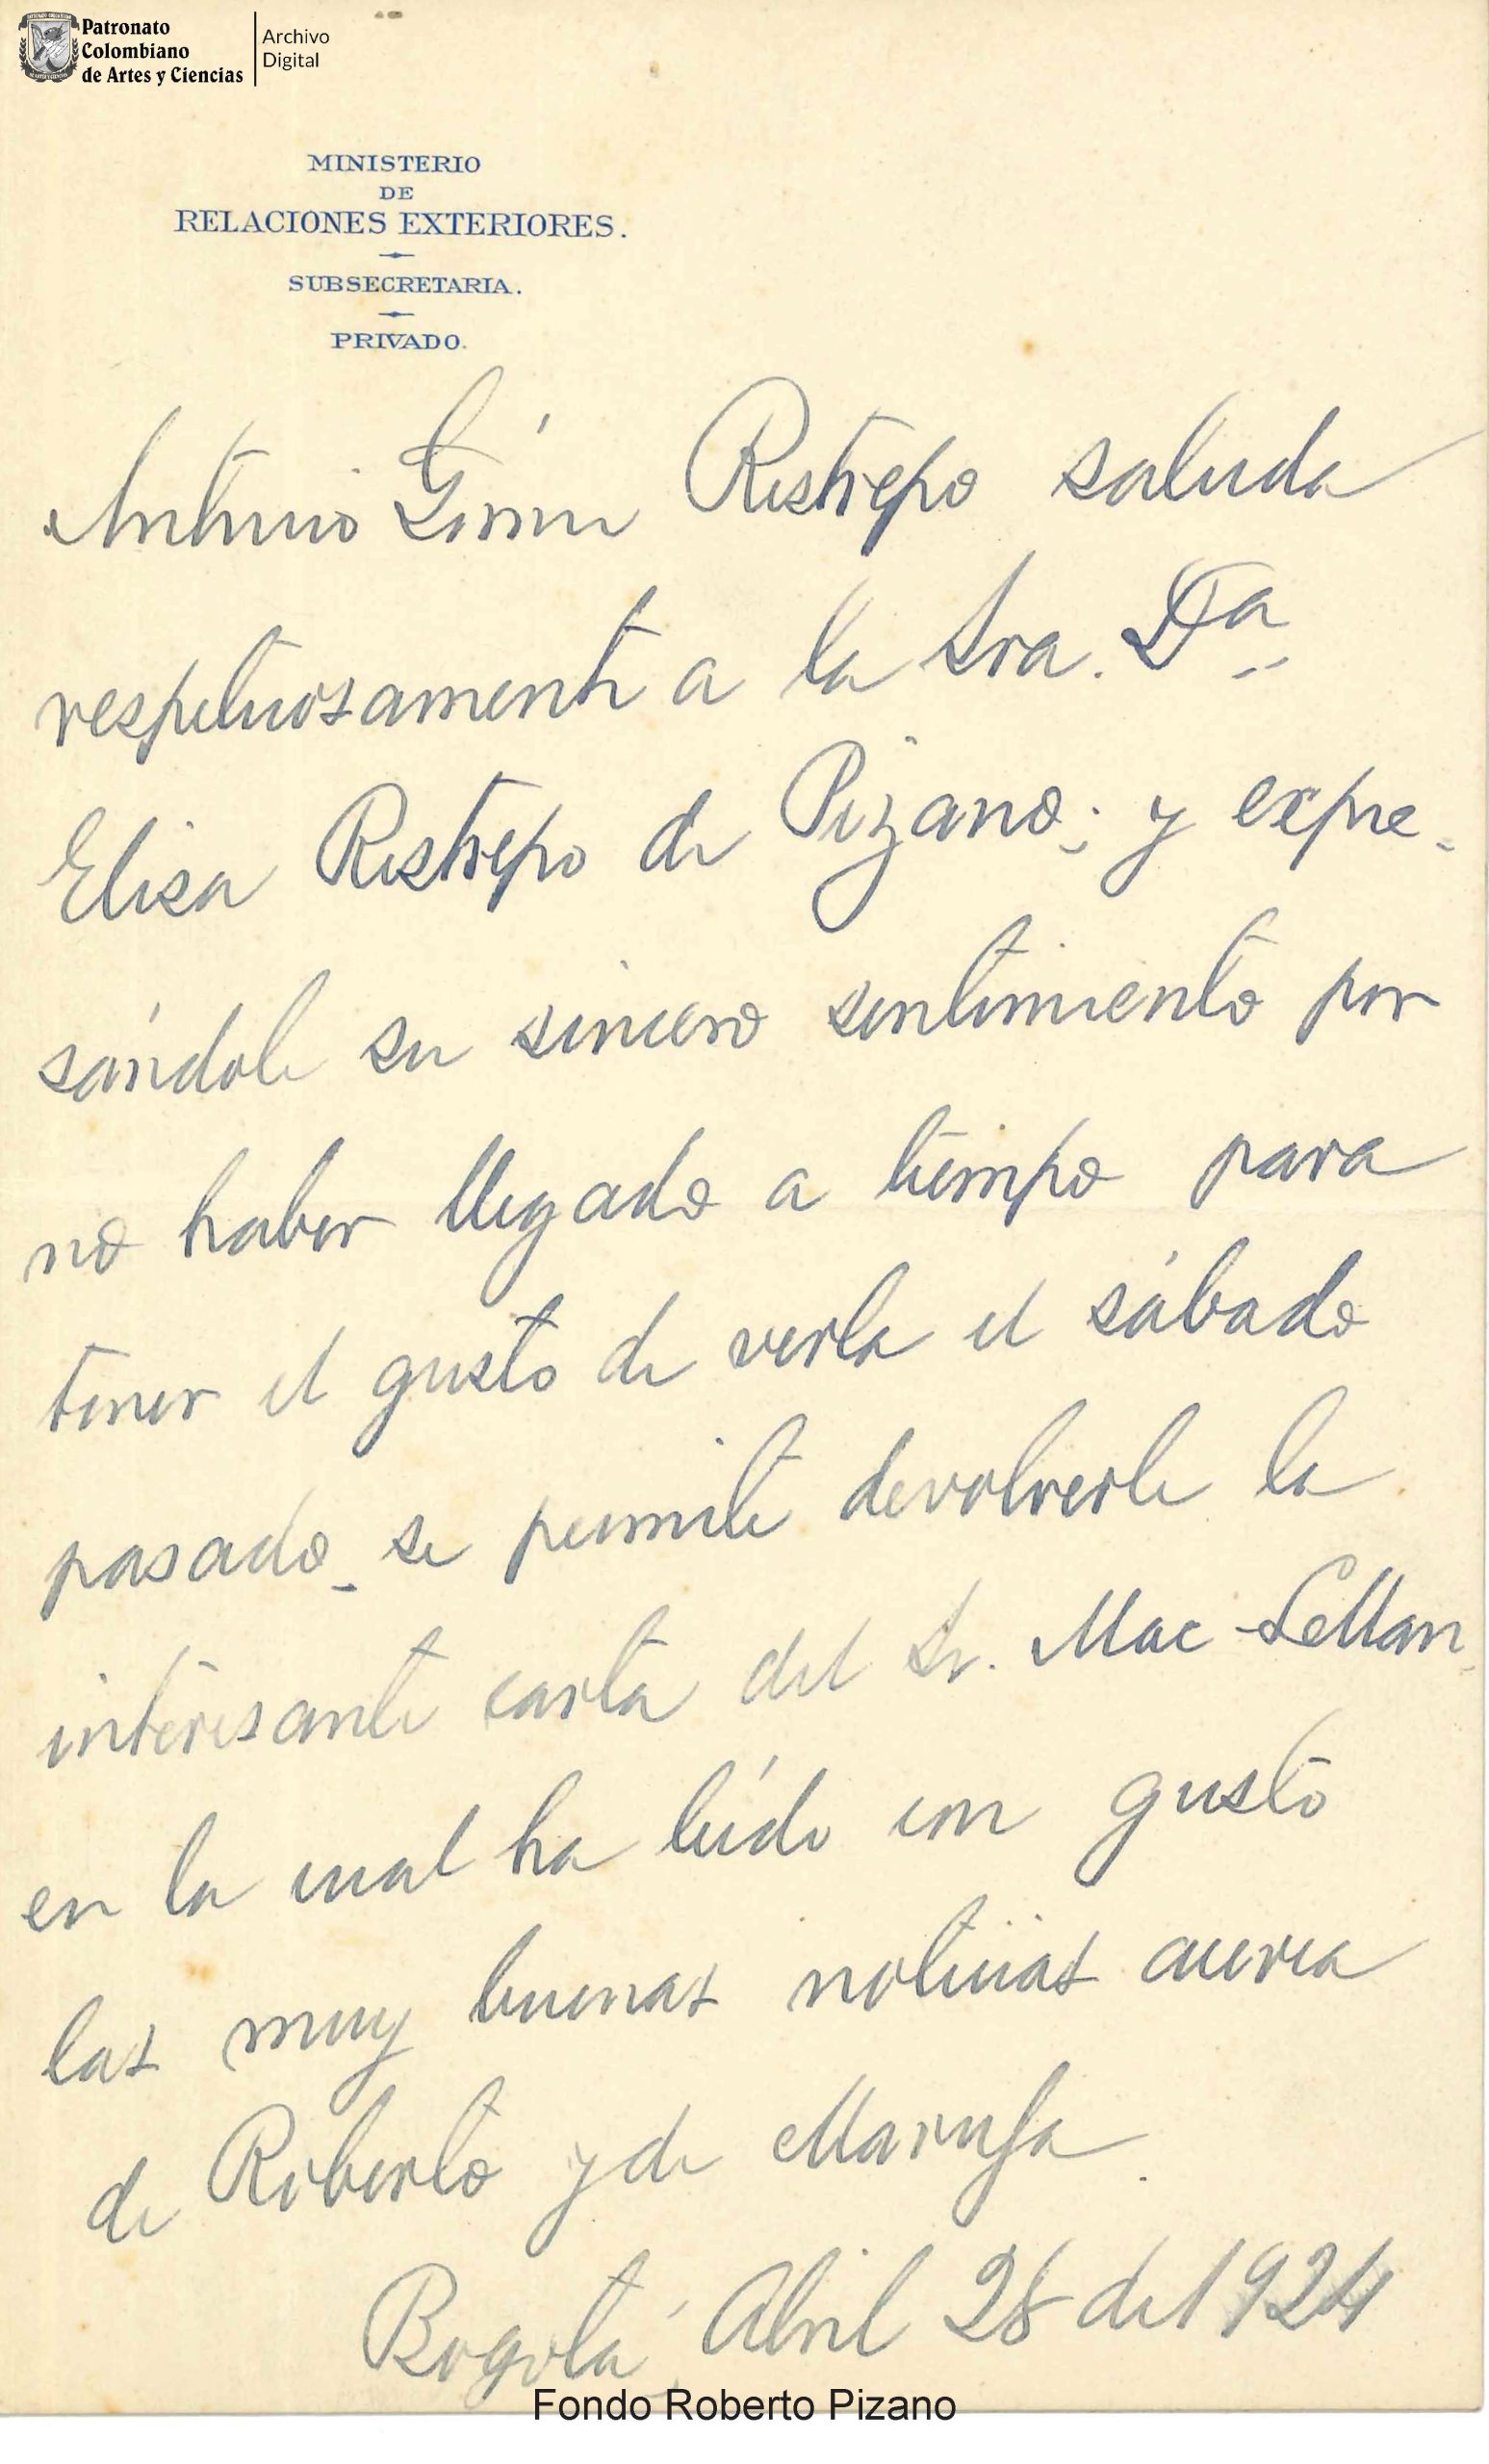 Patronato
Colombiano
de Artes y Ciencias
Archivo
Digital
MINISTERIO
DE
RELACIONES EXTERIORES.
SUBSECRETARIA.
PRIVADO.
Antonio Gómez Restrepo saluda
respetuosamente a la Sra. Da
Elisa Restrepo de Pizano; y expre-
sándole su sincero sentimiento por
no haber llegado a tiempo para
tener el gusto de verla el sábado
pasado, se permite devolverle la
interesante carta del Sr. Mac-Lellan,
en la cual ha leído con gusto
las muy buenas noticias acerca
de Roberto y de Maruja.
Bogotá, Abril 28 de 1924
Fondo Roberto Pizano